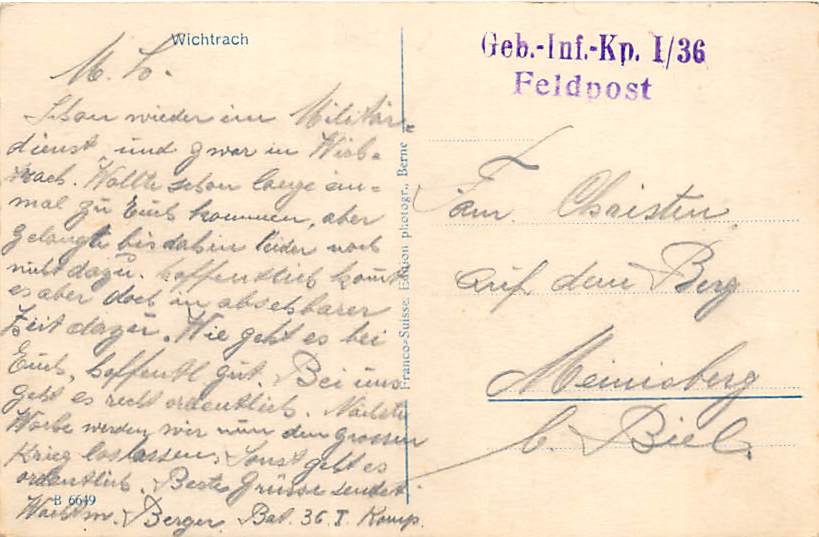 Wichtrach
M. L.
Schon wieder im Militär=
dienst, und zwar in Wich-
trach. Wollte schon lange ein=
mal zu Euch kommen, aber
gelangte bis dahin leider noch
nicht dazu. Hoffentlich komt
es aber doch in absehbarer
Zeit dazu. Wie geht es bei
Euch, hoffentl gut. Bei uns
geht es recht ordentlich. Nächste
Woche werden wir nun den grossen
Krieg loslassen. Sonst geht es
ordentlich. Beste Grüsse sendet
Wachtm. Berger. Bat. 36 I. Komp.
B 6649
Franco-Suisse, Edition photogr., Berne
Geb.-Inf.-Kp. I/36
Feldpost
Fam. Christen
auf dem Berg
Meinisberg
b. Biel.